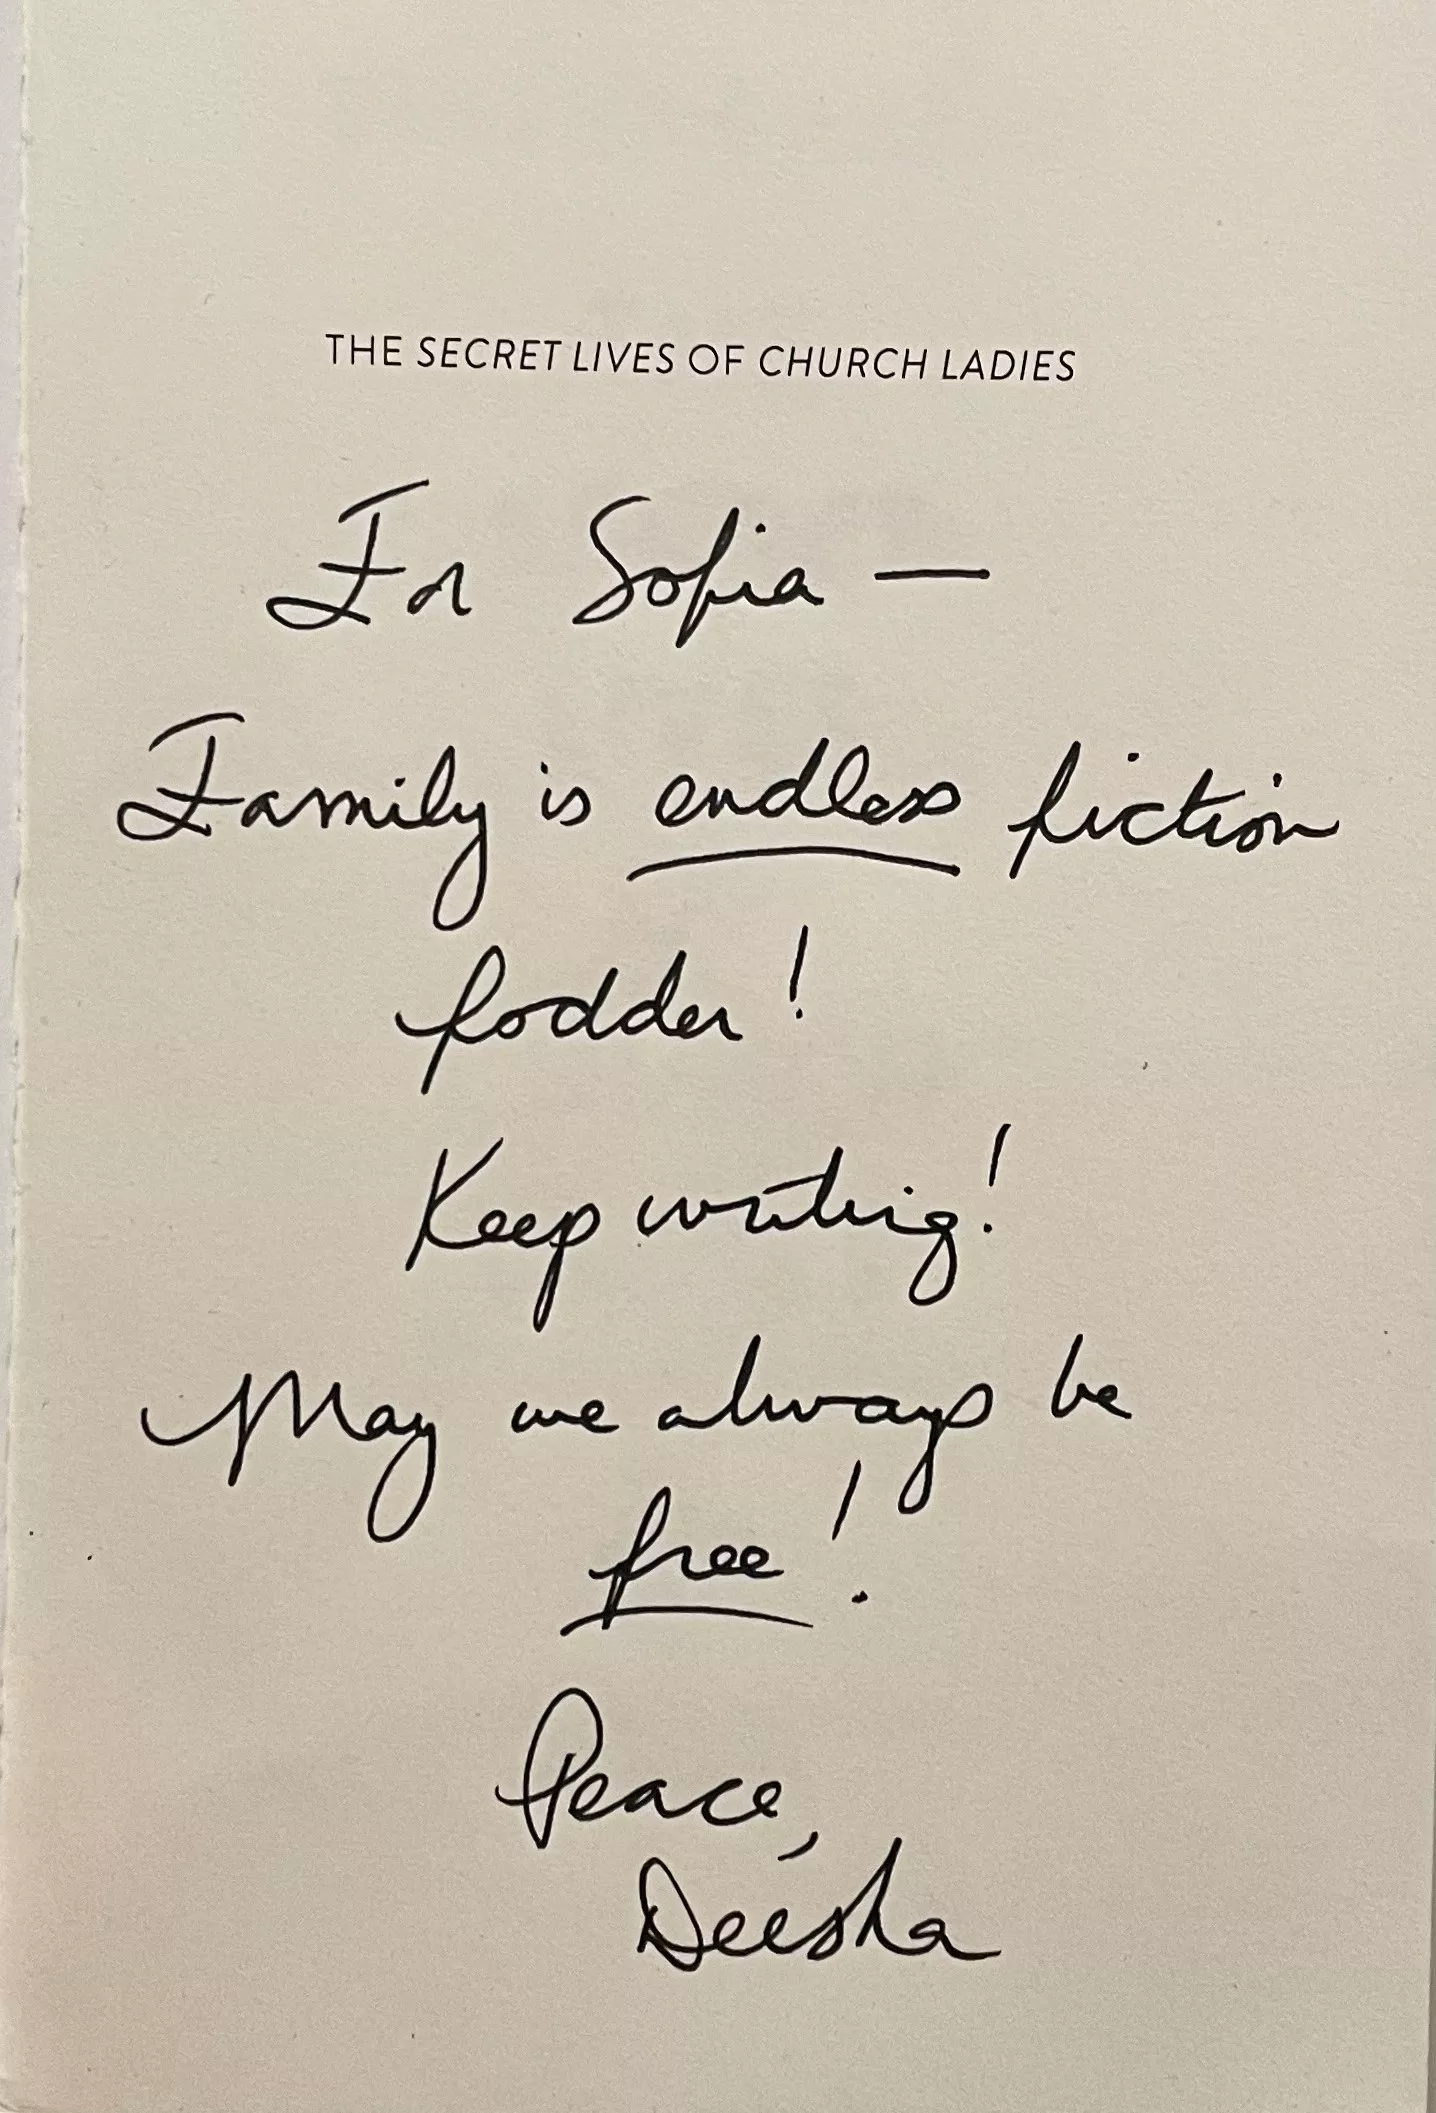 THE SECRET LIVES OF CHURCH LADIES
For Sofia —
Family is endless fiction
fodder!
Keep writing!
May we always be
free!
Peace,
Deesha